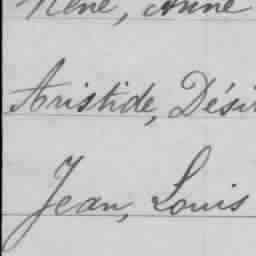 René, Anne
Aristide, Dési
Jean, Louis